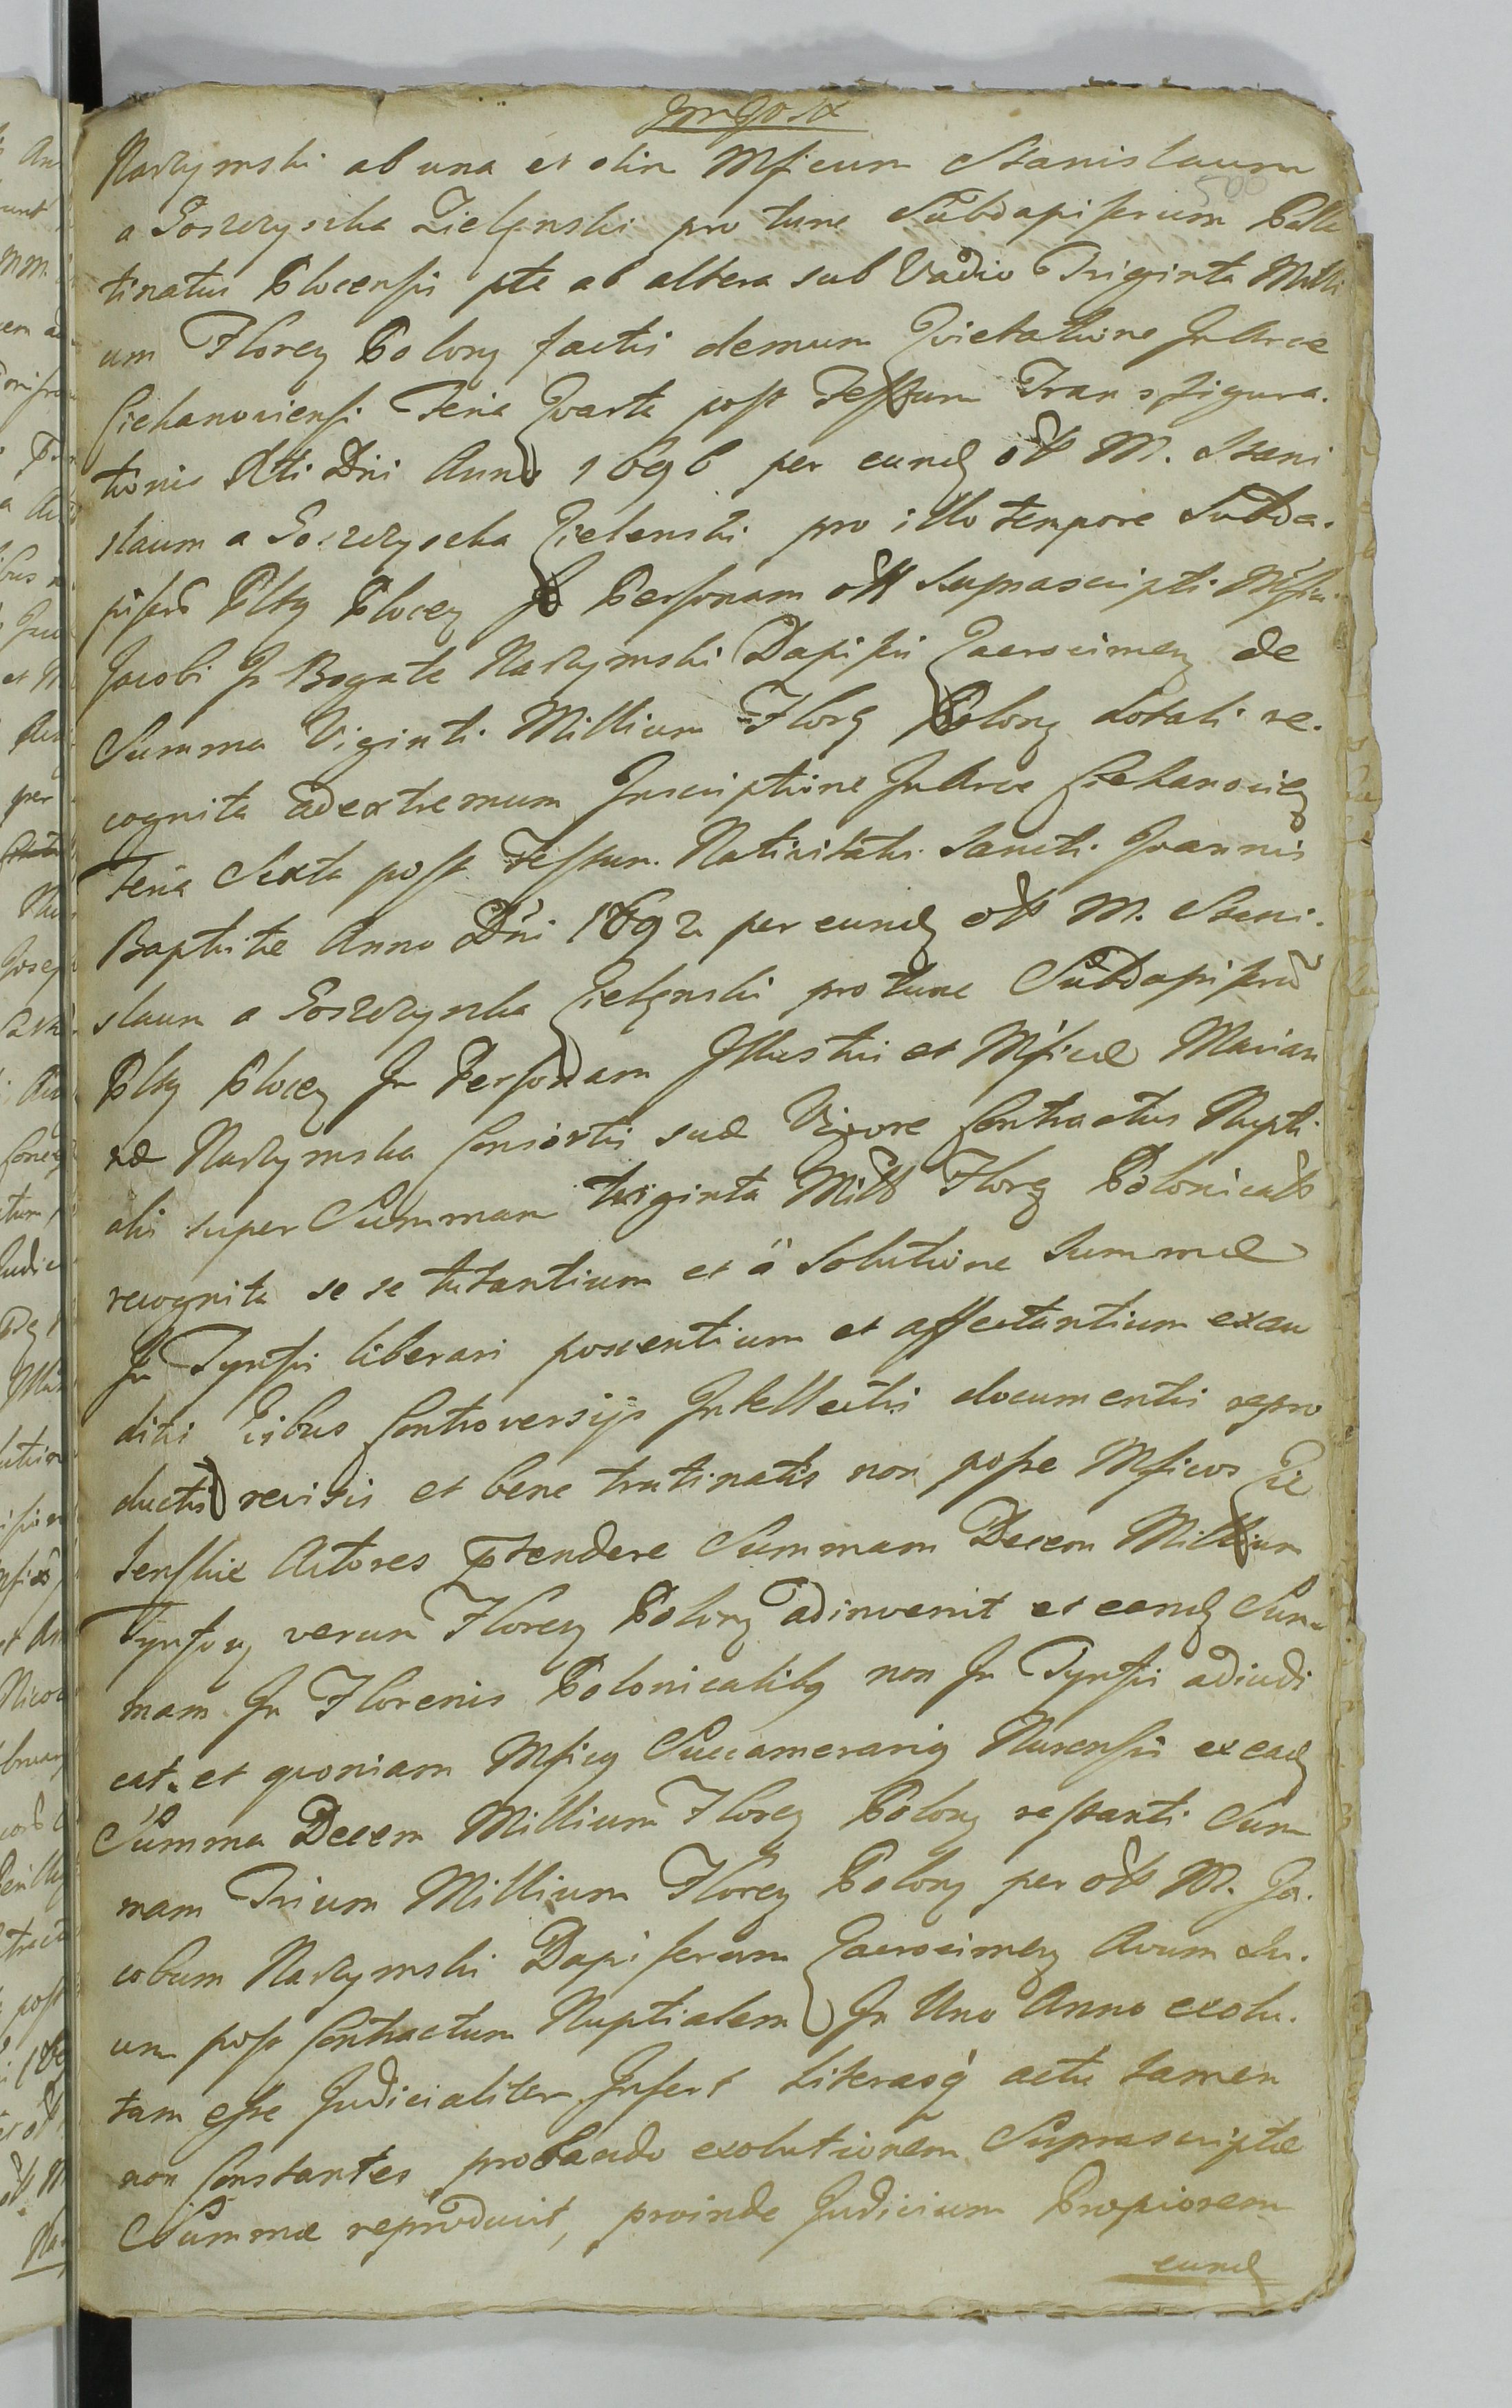 Narzymski ab una et olim Mficum Stanislaum
a Goszczyska Zielenski pro tunc Subdapiferum Palla
tinatus Plocensis pte ab altera sub Vadio Triginta Milli
um Floreg Polong factis demum Qvietatione In Arce
Ciehanoviensi Feria Qvarta post Festum Transfigura.
tionis Xti Dni Anno 1696 per eundg olt M. Stani
slaum a Goszczyscha Zielenski pro illo tempore Subda.
piferu Pltg Ploceg In Personam olt Suprascripti Mfici
Jacobi In Bogate Narzymski Dapiferi Zacrocimeg de
Summa Viginti Millium Florg Polong dotali re.
cognita ad extremum Inscriptione In Arce Ciehanovieg
Feria Sexta post Festum Nativitatis Sancti Joannis
Baptiste Anno Dni 1692 per eundg olt M. Stani.
slaum a Goszczyscha Zielenski pro tunc Subdapiferu
Pltg Ploceg In Personam Illustris et Mficæ Marian
næ Narzymska Consortis suæ Vigore Contractus Nupti
alis super Summam triginta Mill Florg Polonicalt
recognita se se tutantium et a Solutione Summæ
In Tynfis liberari poscentium et affectantium exau
ditis Eibus Controversijs Intellectis documentis repro
ductis revisis et bene trutinatis non posse Mficos Zie
lenskie Actores prtendere Summam Decem Millium
Tynfog verum Floreg Polong adinvenit et eandg Sum
mam In Florenis Polonicalibg non In Tynfis adiudi
cat. et qvoniam Mficg Succamerarig Nurensis ex eadg
Summa Decem Millium Floreg Polong restanti Sum
mam Trium Millium Floreg Polong per olt M. Ja.
cobum Narzymski Dapiferum Zacrocimeg Avum Su.
um post Contractum Nuptialem In Uno Anno exolu.
tam esse Judicialiter Infert Literasq actu tamen
non Constantes probando exolutionem Suprascriptæ
Summæ reproducit, proinde Judicium Propiorem
eundg